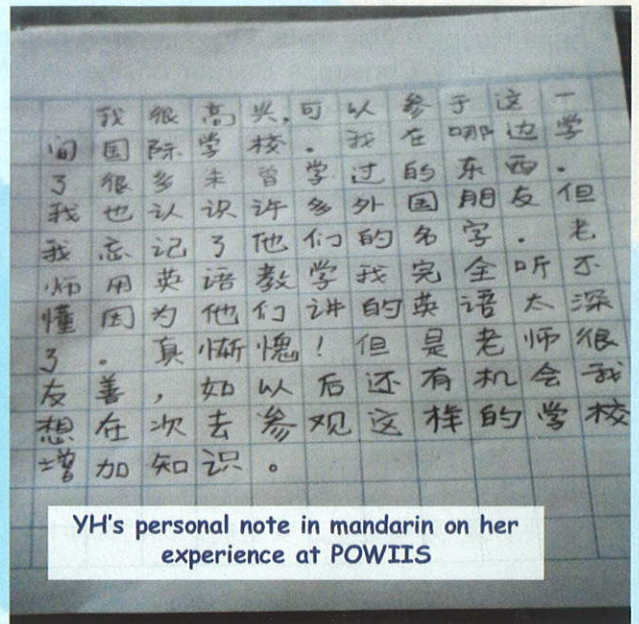 我很高兴,可以参于这一
间国际学校。我在哪边学
了很多未曾学过的东西。
我也认识许多外国朋友但
我忘记了他们的名字。老
师用英语教学我完全听不
懂因为他们讲的英语太深
了。真惭愧!但是老师很
友善,如以后还有机会我
想在次去参观这样的学校
增加知识。
YH's personal note in mandarin on her
experience at POWIIS